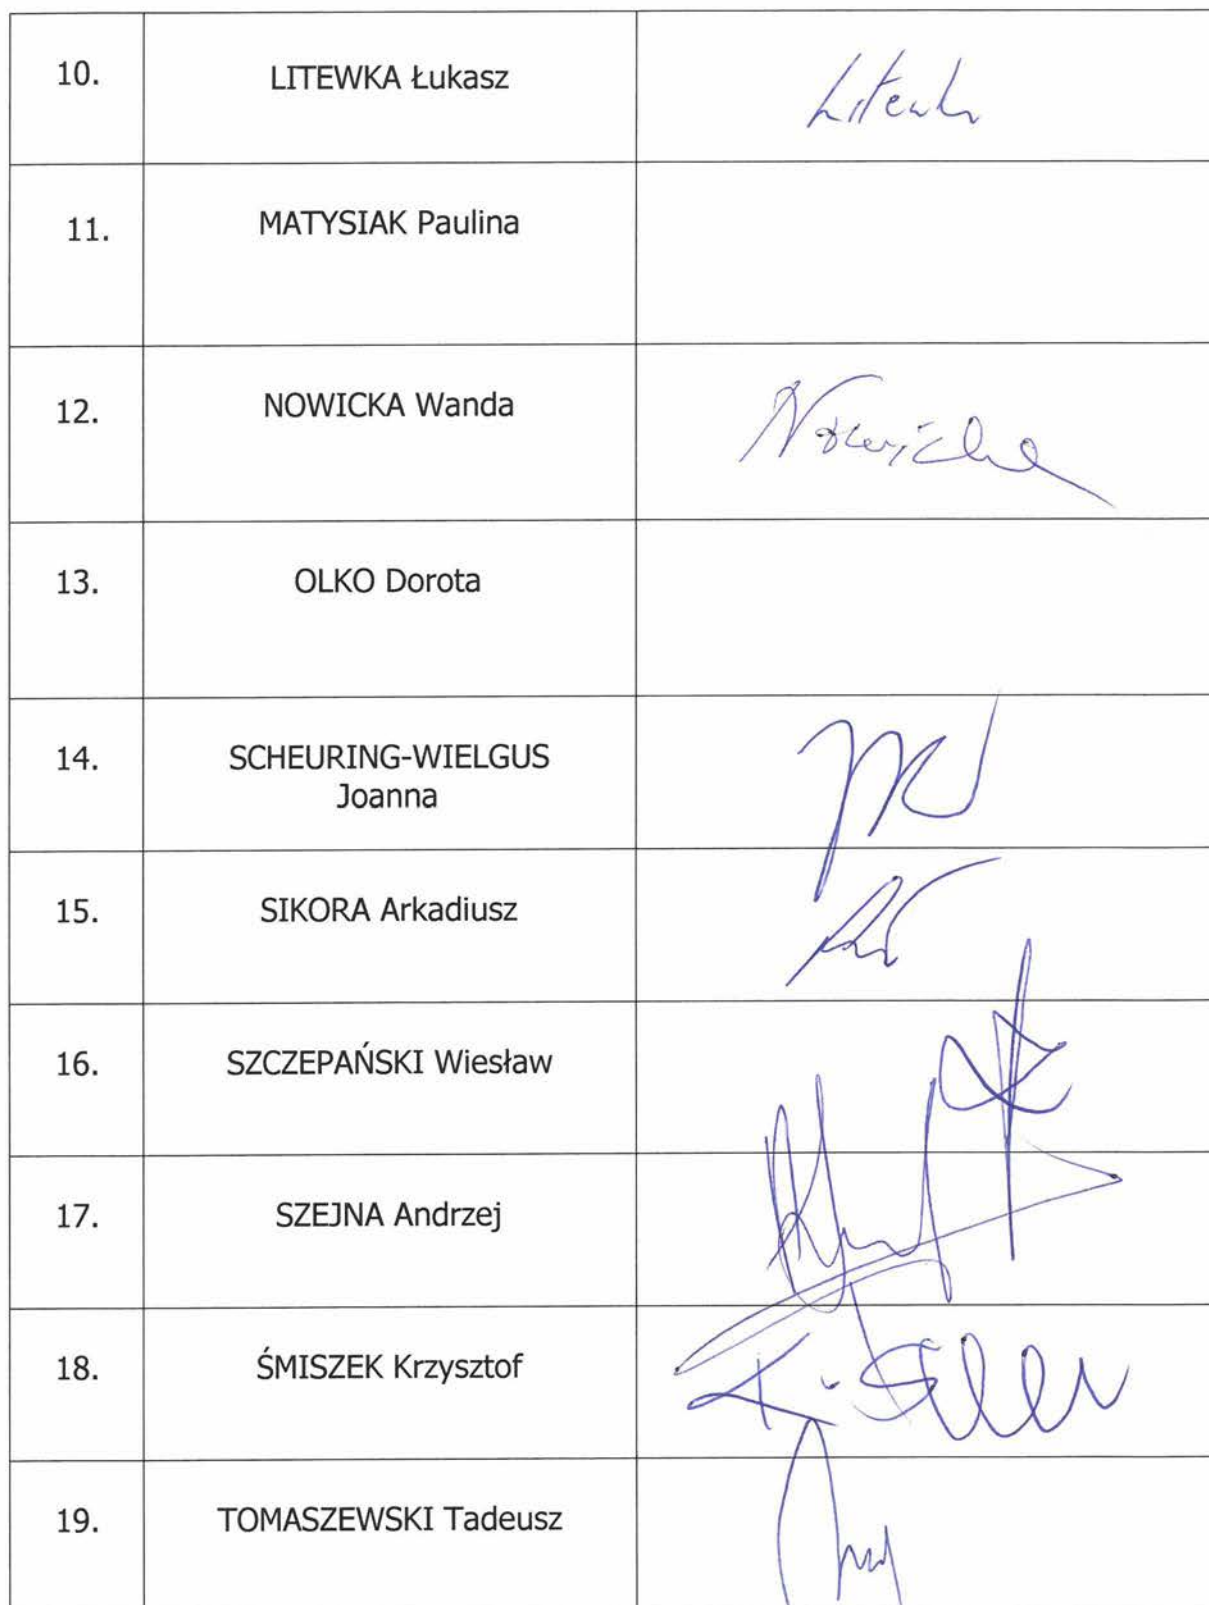 10. LITEWKA Łukasz Litewka
11. MATYSIAK Paulina
12. NOWICKA Wanda Nowicka
13. OLKO Dorota
14. SCHEURING-WIELGUS
Joanna
15. SIKORA Arkadiusz
16. SZCZEPAŃSKI Wiesław
17. SZEJNA Andrzej
18. ŚMISZEK Krzysztof
19. TOMASZEWSKI Tadeusz